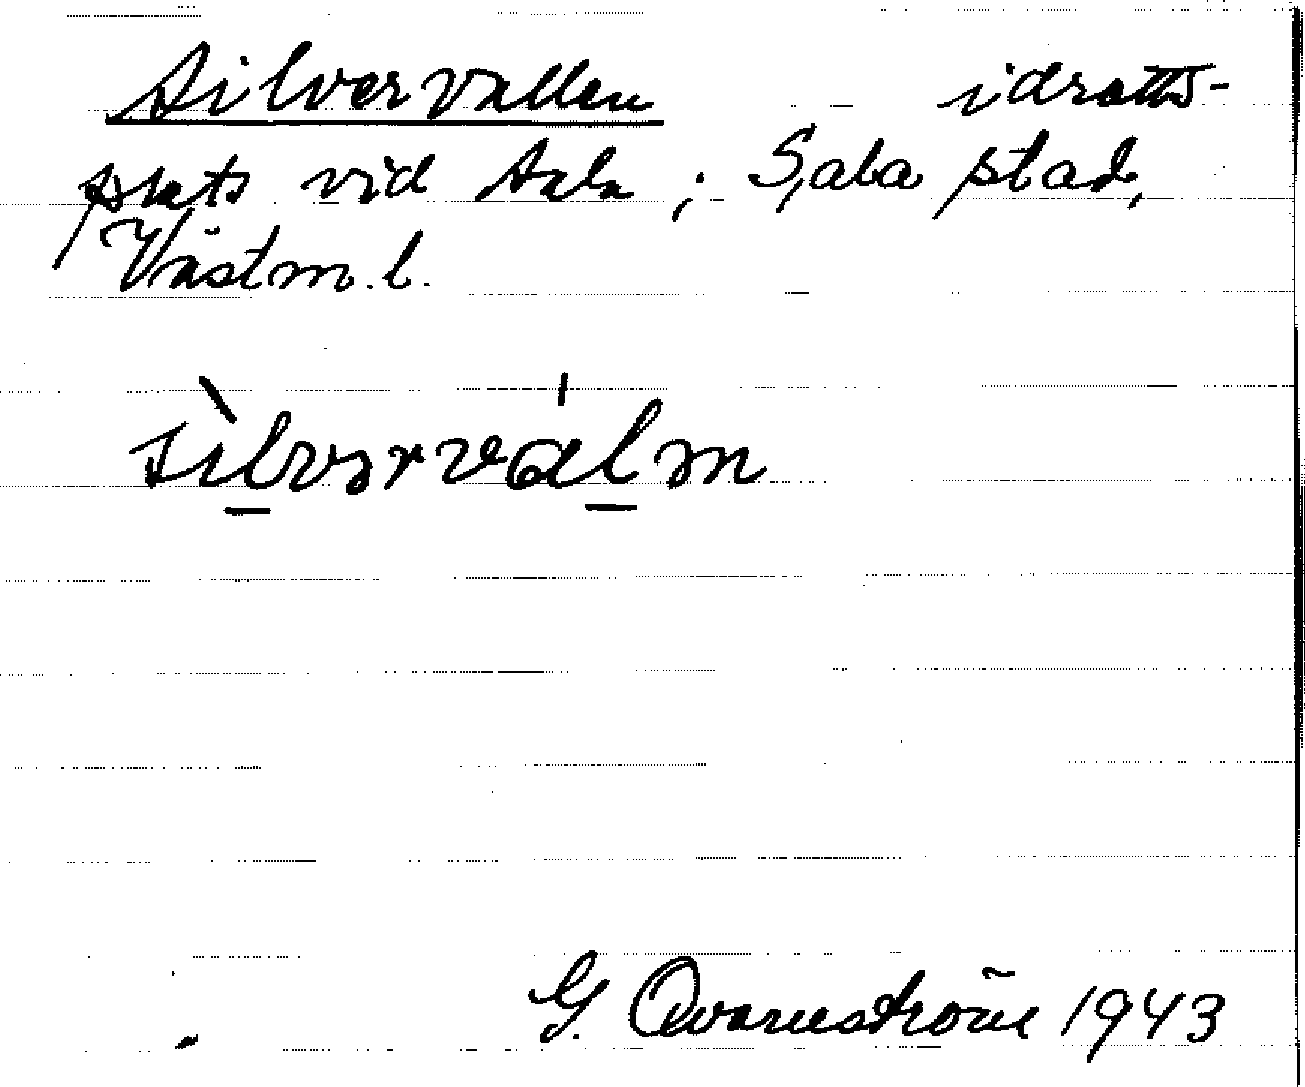 Silvervallen idrotts-
plats vid Sala; Sala stad,
Västm. l.
sìlvərválən
G. Qvarnström 1943